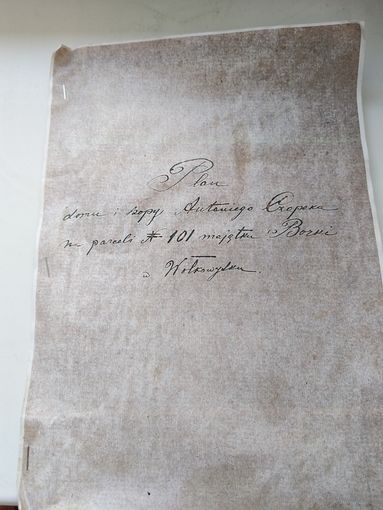 Plan
domu i szopy Antoniego Czapeka
na parceli № 101 majątku Borki
w Wołkowysku.